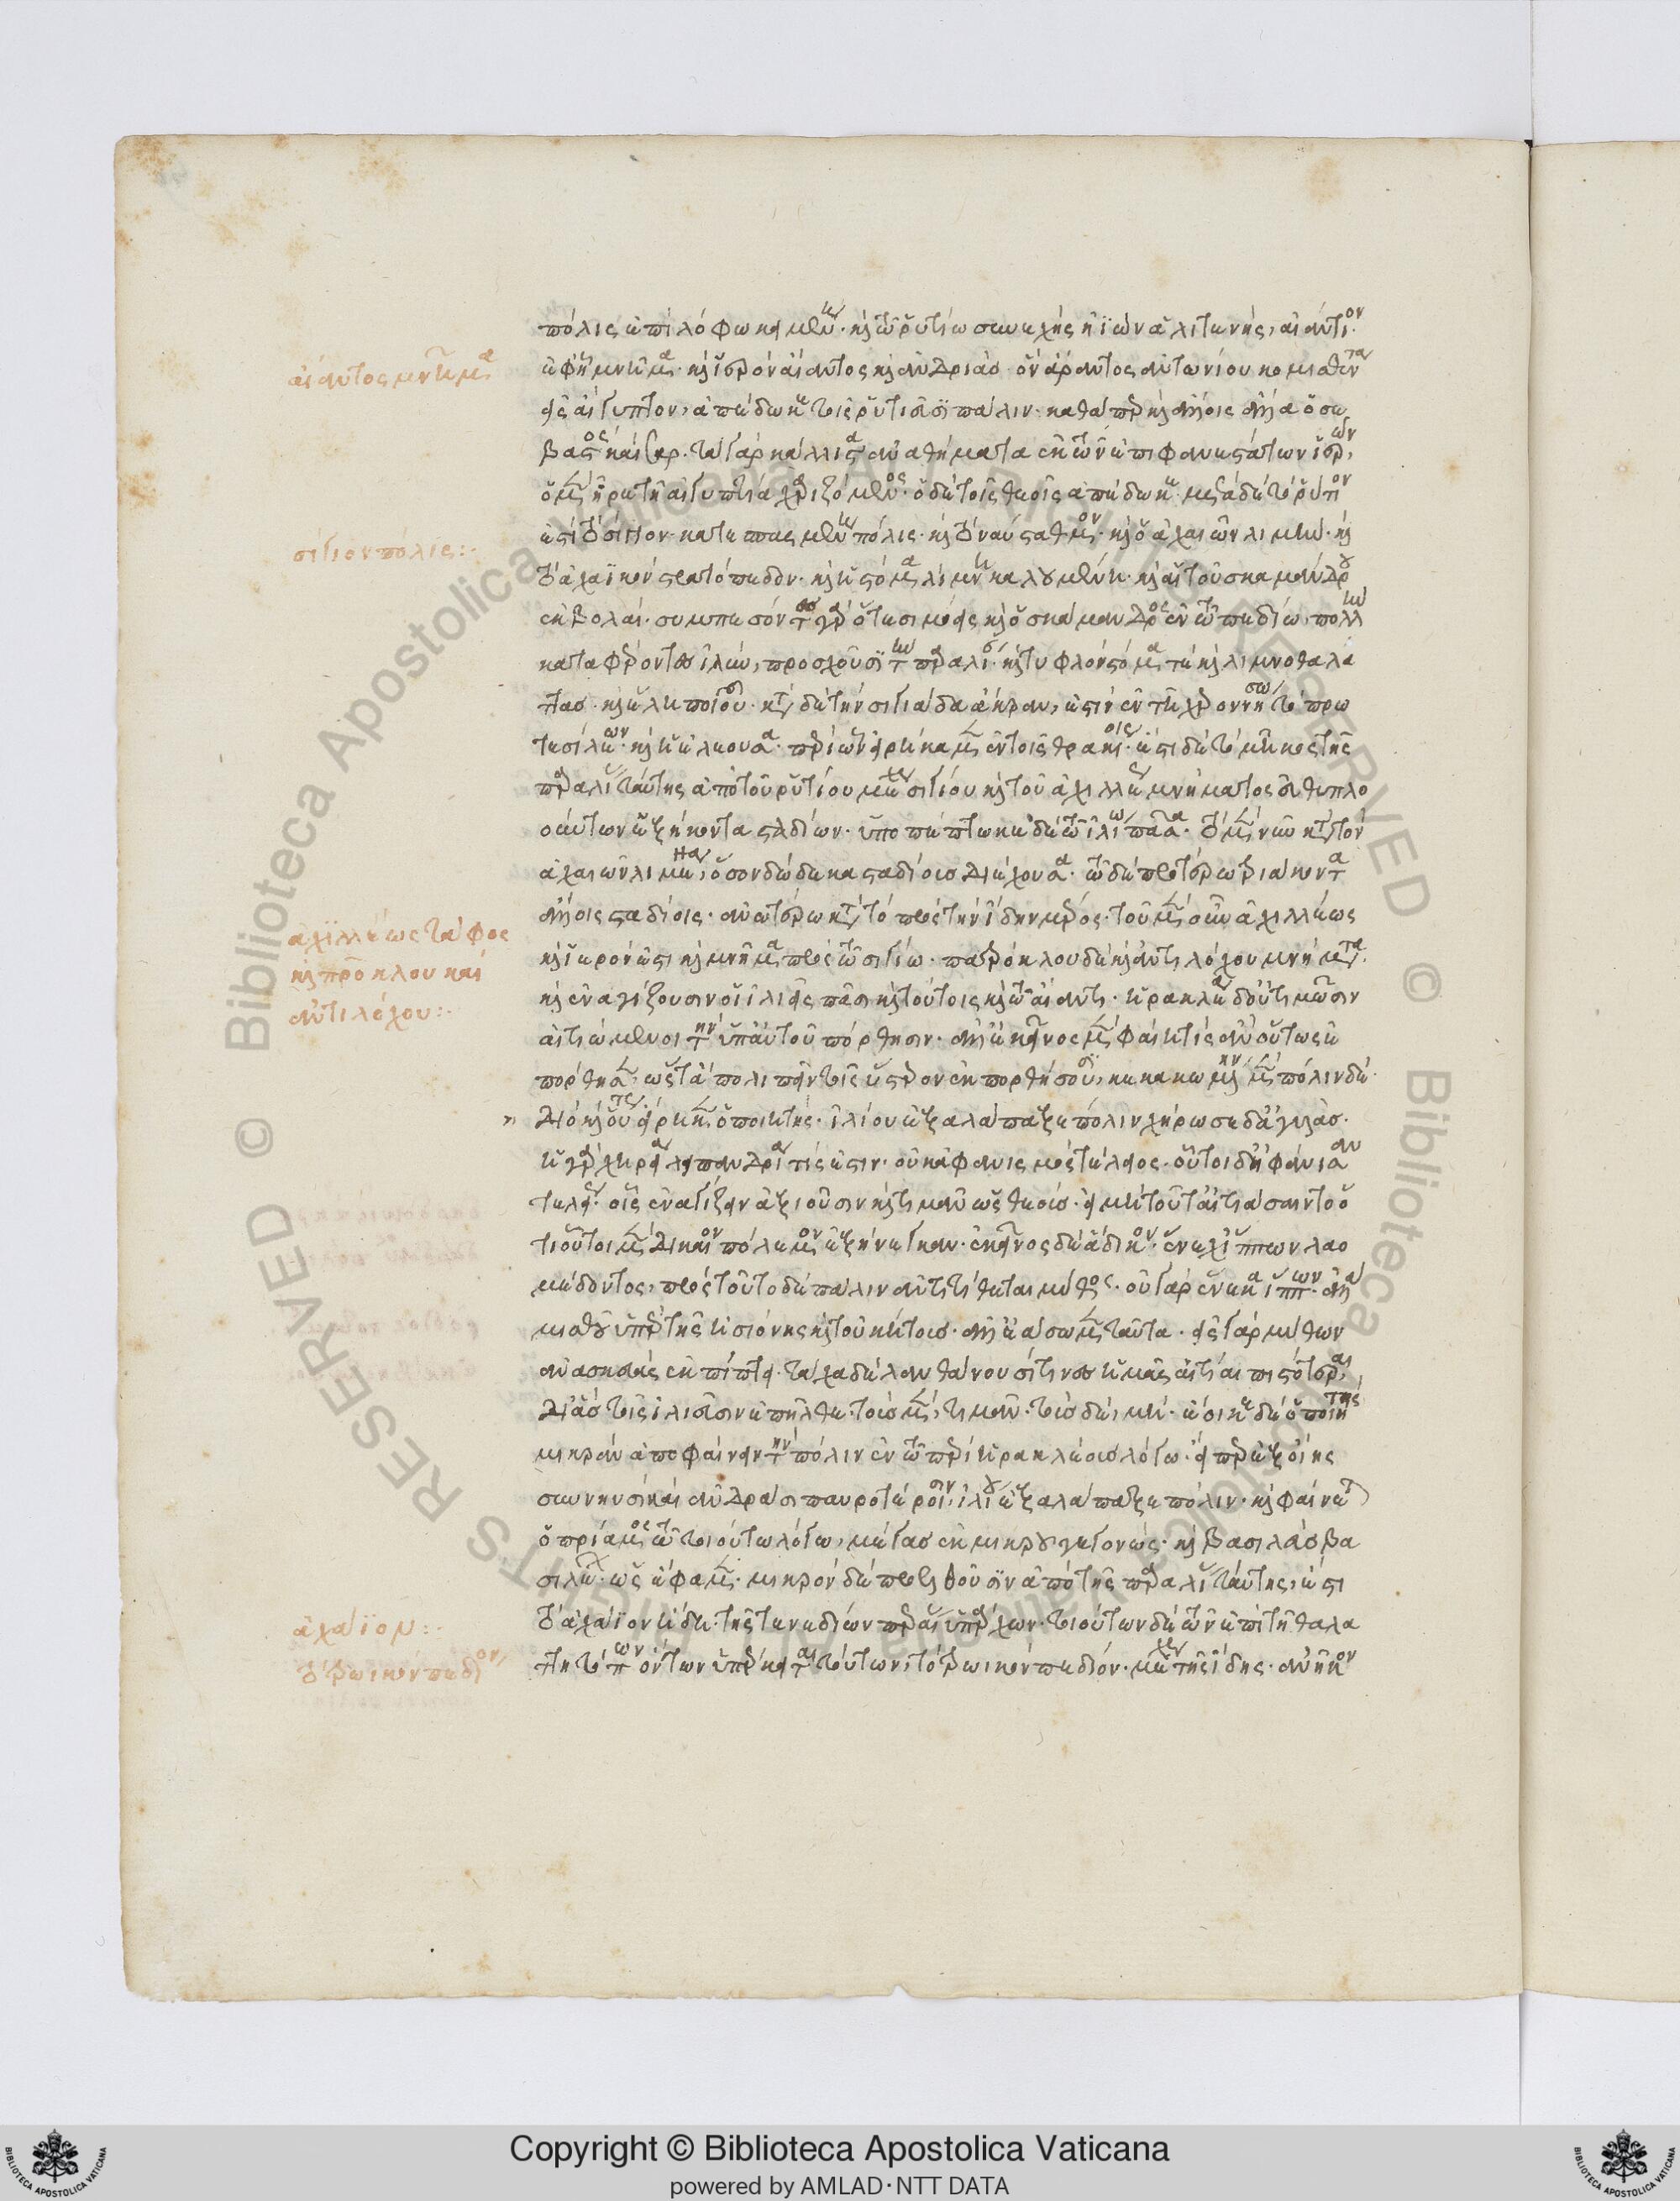 πόλις ἐπὶ λόφω κειμένη· καὶ τῶ ῥυτίω συνεχὴς ἠϊὼν ἁλιτενής, αἰάντιον.
ἐφ' ἧ μνῆμα· καὶ ἱερὸν αἴαντος καὶ ἀνδριάς· ὃν ἄραντος ἀντωνίου κομισθέντα
εἰς αἴγυπτον, ἀπέδωκε τοῖς ῥυτιεῦσι πάλιν· καθάπερ καὶ ἄλλοις ἄλλα ὁ σε
βαστὸς καίσαρ. τὰ γὰρ κάλλιστα ἀναθήματα ἐκ τῶν ἐπιφανεστάτων ἱερῶν,
ὁ μὲν ἦρε τῆ αἰγυπτία χαριζόμενος· ὁ δὲ τοῖς θεοῖς ἀπέδωκε· μετὰ δὲ τὸ ῥύτιον
ἐστὶ τὸ σίγιον· κατεσπασμένη πόλις· καὶ τὸ ναύσταθμον· καὶ ὁ ἀχαιῶν λιμήν· καὶ
τὸ ἀχαϊκὸν στρατόπεδον· καὶ ἡ στομαλίμνη καλουμένη· καὶ αἱ τοῦ σκαμάνδρου
ἐκβολαί· συμπεσόντες γὰρ ὅ τε σιμόεις καὶ ὁ σκάμανδρος ἐν τῶ πεδίω, πολλὴν
καταφέροντες ἰλύν, προσχοῦσι τὴν παραλίαν· καὶ τυφλὸν στόμα τε καὶ λιμνοθαλά
ττας· καὶ ἕλη ποιοῦσι· κατὰ δὲ τὴν σιγιάδα ἄκραν, ἐστὶν ἐν τῆ χερρονήσω τὸ πρω
τεσιλάειον· καὶ ἡ ἐλεοῦσα· περὶ ὧν εἰρήκαμεν ἐν τοῖς θρακίοις· ἔστι δὲ τὸ μῆκος τῆς
παραλίας ταύτης ἀπὸ τοῦ ῥυτίου μέχρι σιγίου καὶ τοῦ ἀχιλλέως μνήματος εὐθυπλο
ούντων ἑξήκοντα σταδίων· ὑποπέπτωκε δὲ τῶ ἰλίω πᾶσα· τῶ μὲν νῦν κατὰ τὸν
ἀχαιῶν λιμένα, ὅσον δώδεκα σταδίοις διέχουσα· τῶ δὲ προτέρω τριάκοντα
ἄλλοις σταδίοις· ἀνωτέρω κατὰ τὸ πρὸς τὴν ἴδην μέρος· τοῦ μὲν οὖν ἀχιλλέως
καὶ ἱερόν ἐστι καὶ μνῆμα πρὸς τῶ σιγίω· πατρόκλου δὲ καὶ ἀντιλόχου μνήματα·
καὶ ἐναγίζουσιν οἱ ἰλιεῖς πᾶσι καὶ τούτοις καὶ τῶ αἴαντι· ἡρακλέα δ' οὐ τιμῶσιν
αἰτιώμενοι τὴν ὑπ' αὐτοῦ πόρθησιν· ἀλλ' ἐκεῖνος μὲν φαίη τις ἂν οὕτως ἐ
πόρθησεν, ὥστ' ἀπολιπεῖν τοῖς ὕστερον ἐκπορθήσουσι, κεκακωμένην μὲν πόλιν δέ·
διὸ καὶ οὕτως εἴρηκεν ὁ ποιητής· ἰλίου ἐξαλάπαξε πόλιν χήρωσε δ' ἀγυιάς·
ἡ γὰρ χηρεία λειπανδρία τίς ἐστιν· οὐκ ἀφανισμὸς τέλεος· οὗτοι δ' ἠφάνισαν
τελείως· οἷς ἐναγίζειν ἀξιοῦσιν καὶ τιμᾶν ὡς θεούς· εἰ μὴ τοῦτ' αἰτιάσαιντο ὅ
τι οὗτοι μὲν δίκαιον πόλεμον ἐξήνεγκαν· ἐκεῖνος δὲ ἄδικον· ἕνεχ' ἵππων λαο
μέδοντος, πρὸς τοῦτο δὲ πάλιν ἀντιτίθεται μῦθος· οὐ γὰρ ἕνεκα ἵππων· ἀλλὰ
μισθοῦ ὑπὲρ τῆς ἡσιόνης καὶ τοῦ κήτους· ἀλλ' ἐάσωμεν ταῦτα· εἰς γὰρ μύθων
ἀνασκευὰς ἐκπίπτει· τάχα δὲ λανθάνουσί τινες ἡμᾶς αἰτίαι πιστότεραι,
δι' ἃς τοῖς ἰλιεῦσιν ἐπῆλθε· τοὺς μὲν, τιμᾶν· τοὺς δὲ, μή· ἔοικε δὲ ὁ ποιητὴς
μικρὰν ἀποφαίνειν τὴν πόλιν ἐν τῶ περὶ ἡρακλέους λόγω· εἴπερ ἓξ οἴης
σὺν νηυσὶ καὶ ἀνδράσι παυροτέροισιν, ἰλίου ἐξαλάπαξε πόλιν· καὶ φαίνεται
ὁ πρίαμος τῶ τοιούτω λόγω, μέγας ἐκ μικροῦ γεγονώς· καὶ βασιλεὺς βα
σιλέων· ὡς ἔφαμεν· μικρὸν δὲ προελθοῦσιν ἀπὸ τῆς παραλίας ταύτης, ἐστὶ
τὸ ἀχαΐιον ἤδη· τῆς τενεδίων περαίας ὑπάρχων· τοιούτων δὲ τῶν ἐπὶ τῆ θαλά
ττη τόπων ὄντων ὑπέρκειται τούτων, τὸ τρωικὸν πεδίον· μέχρι τῆς ἴδης· ἀνῆκον
αἴαντος μνῆμα
σίγιον πόλις:·
ἀχιλλέως τάφος
καὶ πατρόκλου καὶ
ἀντιλόχου:·
ἀχαΐιον:·
τὸ τρωικὸν πεδίον
© Biblioteca Apostolica Vaticana. ALL RIGHTS RESERVED
Copyright © Biblioteca Apostolica Vaticana
powered by AMLAD·NTT DATA
BIBLIOTECA APOSTOLICA VATICANA
BIBLIOTECA APOSTOLICA VATICANA